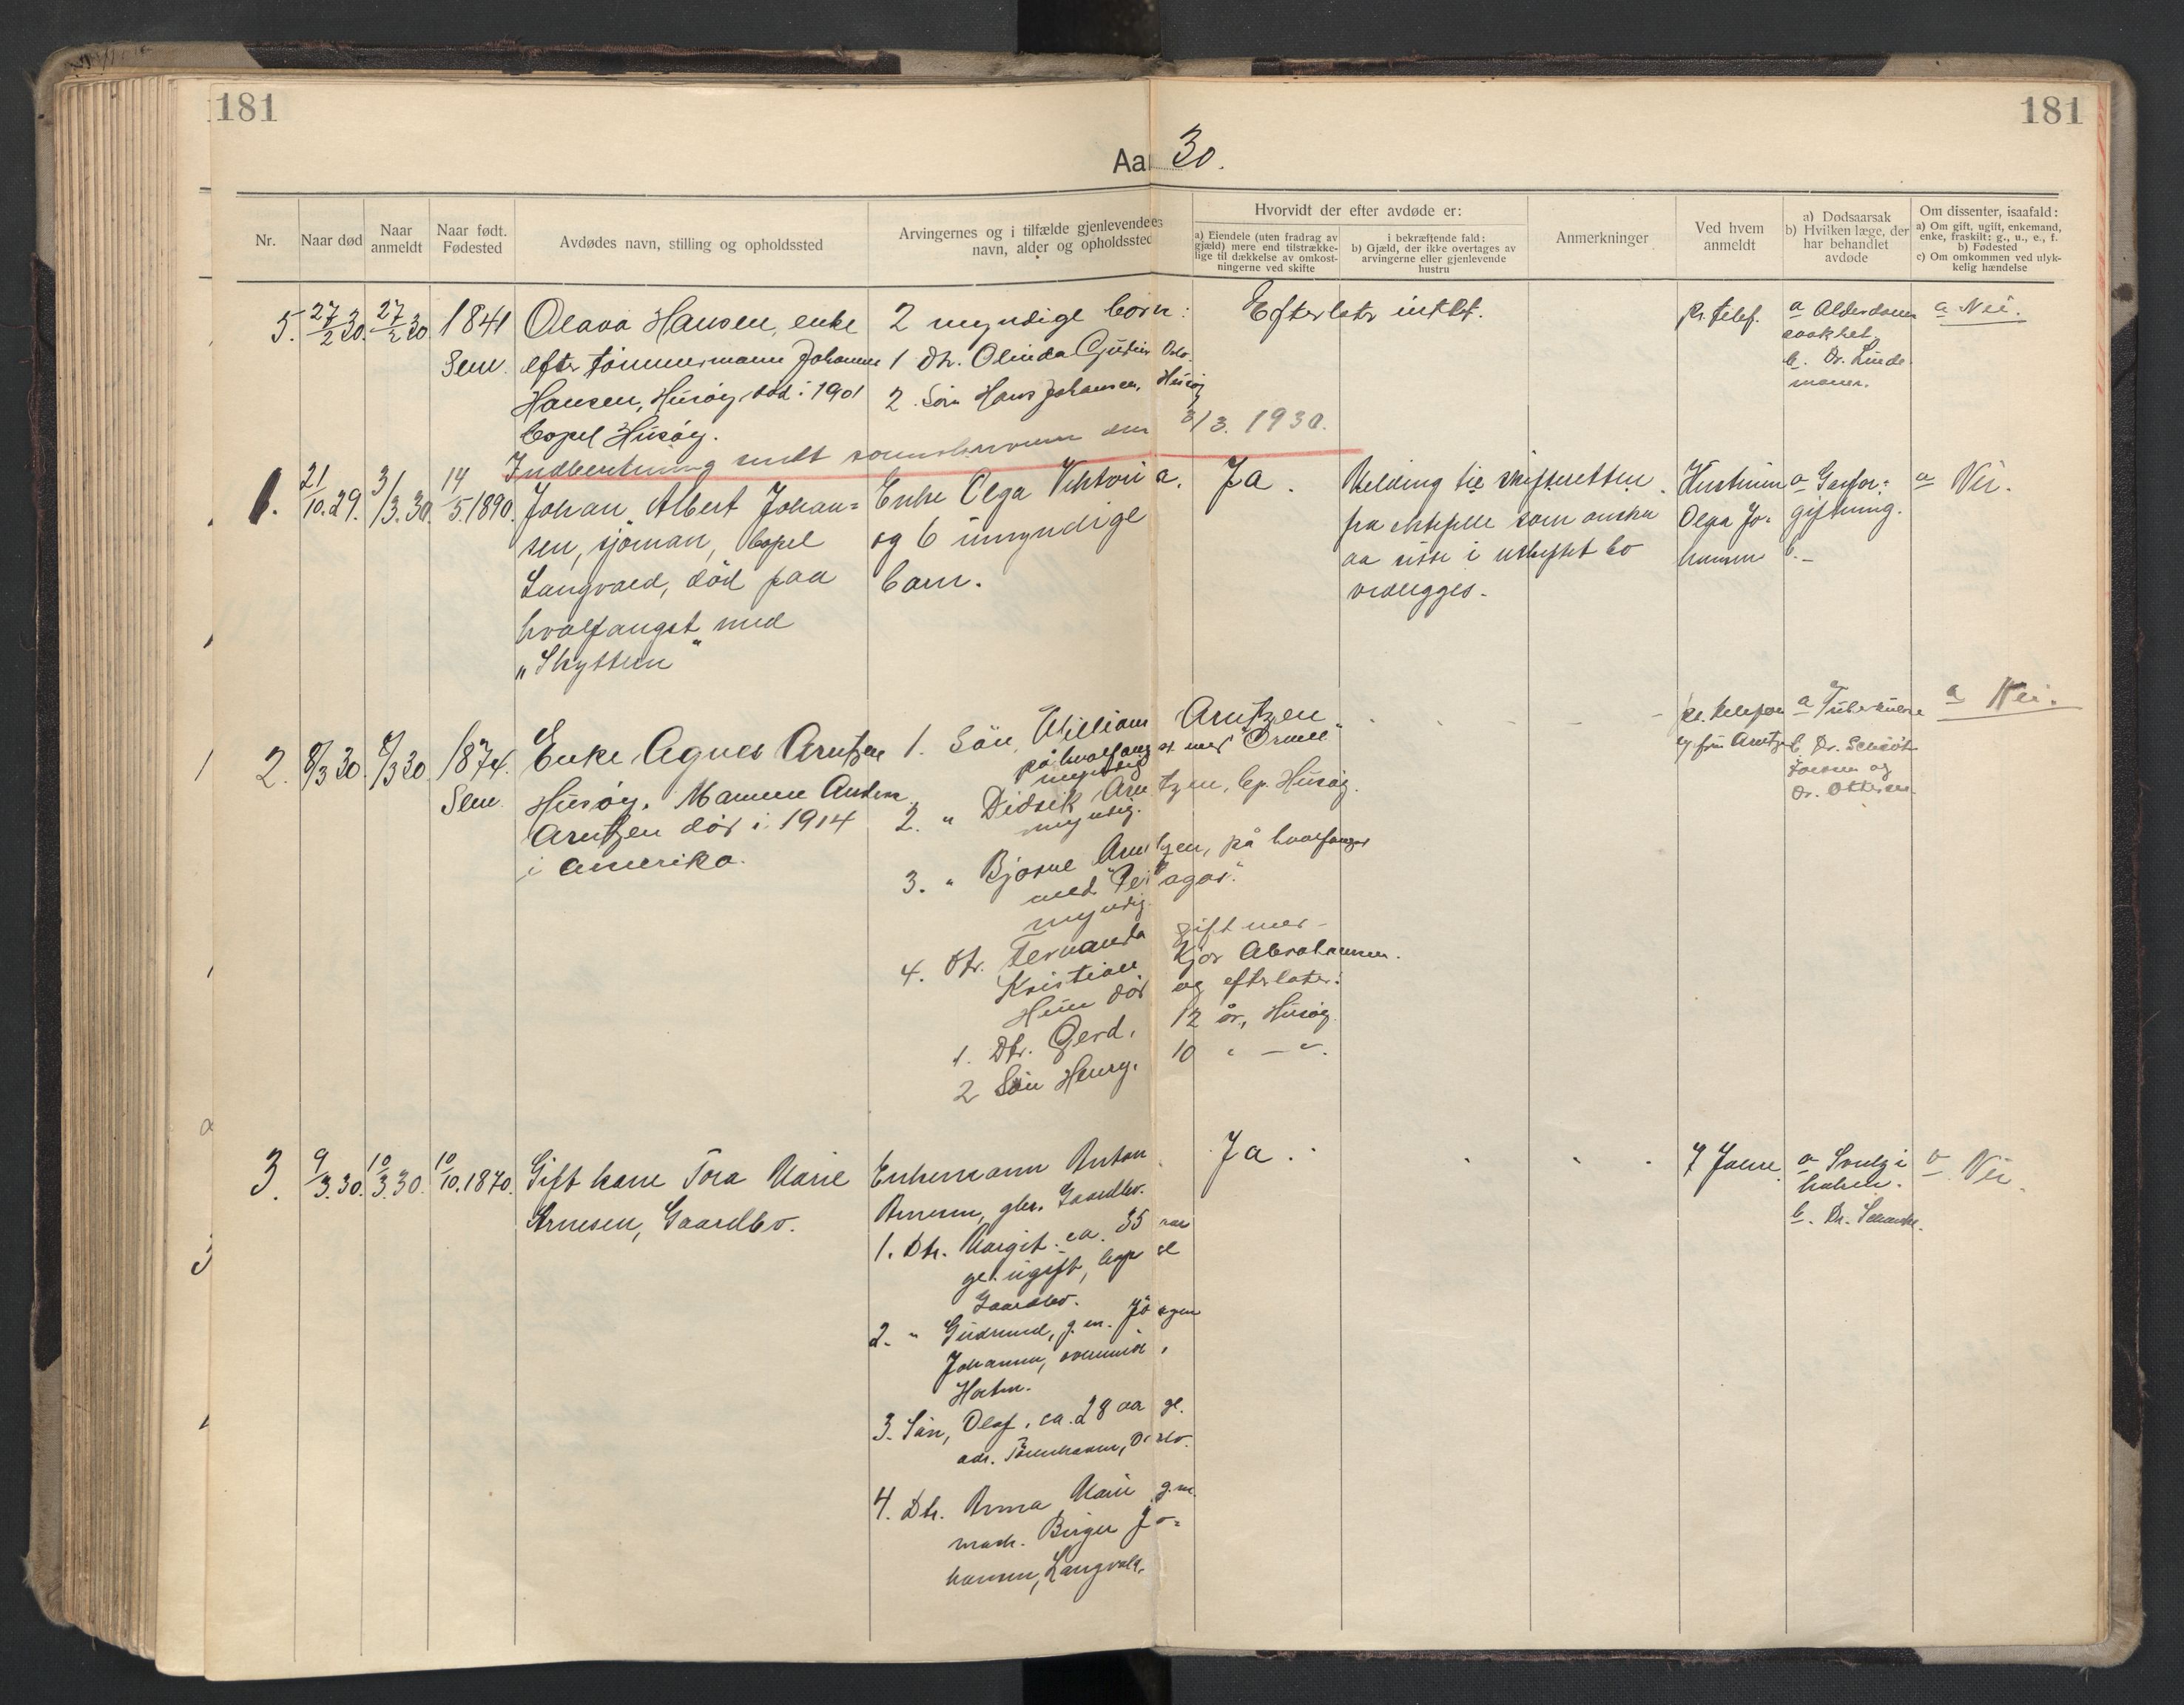 181
181
Aar 30.
Nr.
Naar død
Naar anmeldt
Naar født. Fødested
Avdødes navn, stilling og opholdssted
Arvingernes og i tilfælde gjenlevendes navn, alder og opholdssted
Hvorvidt der efter avdøde er:
a) Eiendele (uten fradrag av gjæld) mere end tilstrækkelige til dækkelse av omkostningerne ved skifte
i bekræftende fald:
b) Gjæld, der ikke overtages av arvingerne eller gjenlevende hustru
Anmerkninger
Ved hvem anmeldt
a) Dødsaarsak
b) Hvilken læge, der har behandlet avdøde
Om dissenter, isaafald:
a) Om gift, ugift, enkemand, enke, fraskilt: g., u., e., f.
b) Fødested
c) Om omkommen ved ulykkelig hændelse
5. 27/2 30. 27/2 30. 1841
Sem.
Olava Hansen, enke
efter tømmermann Johannes
Hansen, Husøy, død i 1901
bopel Husøy.
2 myndige born:
1 Dtr. Olinda Oslo.
2. Søn Hans Johansen, Husøy
Efterlater intet.
pr. telef.
a Alderdoms
svakhet.
b. Dr. Linde
a Nei.
Indberetning sendt sorenskriveren den 3/3. 1930.
1. 21/10.29. 3/3.30. 14/5.1890.
Johan Albert Johan=
sen, sjøman, bopel
Langvard, død paa
hvalfangst med
„Skytteren"
Enke Olga Viktoria.
og 6 umyndige
barn.
Ja.
Melding til skifteretten
fra ektefelle som ønsker
aa sitte i uskiftet bo
vedlegges.
Hustruen
Olga Jo-
hansen
a Gasfor=
giftning.
b. –
a Nei.
2. 8/3 30. 8/3 30 1874.
Sem.
Enke Agnes Arntzen
Husøy. Mannen Anders
Arntzen død i 1914
i Amerika.
1. Søn, William Arntzen
på hvalfangst med
myndig
2. " Didrik Arntzen, bp. Husøy.
myndig.
3. " Bjarne Arntzen, på hvalfangst
med "Pelagos".
myndig.
4. Dtr. Fernanda gift med
Kristian Kjær Abrahamsen.
Hun død og efterlater:
1. Dtr. Gerd. 12 år, Husøy.
2 Søn Henry. 10 " — ".
pr. telefon
a Tuberkulose
b. Dr.
og
Dr. Ottersen.
a Nei.
3. 9/3.30. 10/3.30. 10/10.1870.
Gift kone Tora Marie
Arnesen, Gaardbo.
Enkemann Anton
Arnesen, gbr. Gaardbo.
1. Dtr. Margit. ca. 35 aar
gl. ugift, bopel
Gaardbo.
2. " Gudrund, g. m. Jørgen
Johansen,
3. Søn, Olaf, ca. 28 aar gl.
adr. Oslo.
4. Dtr. Anna Marie g.m.
mask. Birger Jo=
hansen, Langvard.
Ja.
a Svulst i
halsen.
b. Dr.
a Nei.